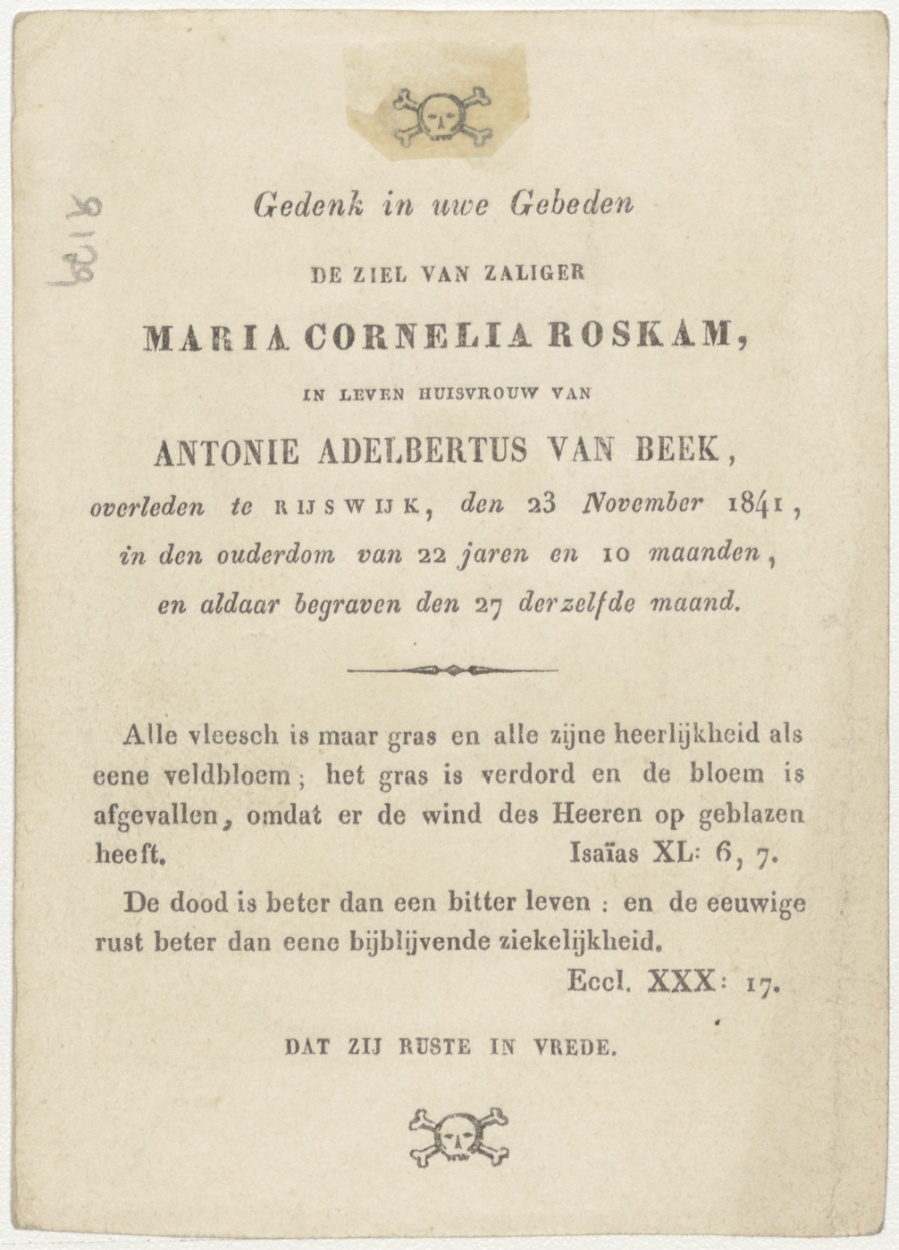 Gedenk in uwe Gebeden
DE ZIEL VAN ZALIGER
MARIA CORNELIA ROSKAM,
IN LEVEN HUISVROUW VAN
ANTONIE ADELBERTUS VAN BEEK,
overleden te RIJSWIJK, den 23 November 1841,
in den ouderdom van 22 jaren en 10 maanden,
en aldaar begraven den 27 derzelfde maand.
Alle vleesch is maar gras en alle zijne heerlijkheid als
eene veldbloem; het gras is verdord en de bloem is
afgevallen, omdat er de wind des Heeren op geblazen
heeft. Isaïas XL: 6, 7.
De dood is beter dan een bitter leven : en de eeuwige
rust beter dan eene bijblijvende ziekelijkheid.
Eccl. XXX: 17.
DAT ZIJ RUSTE IN VREDE.